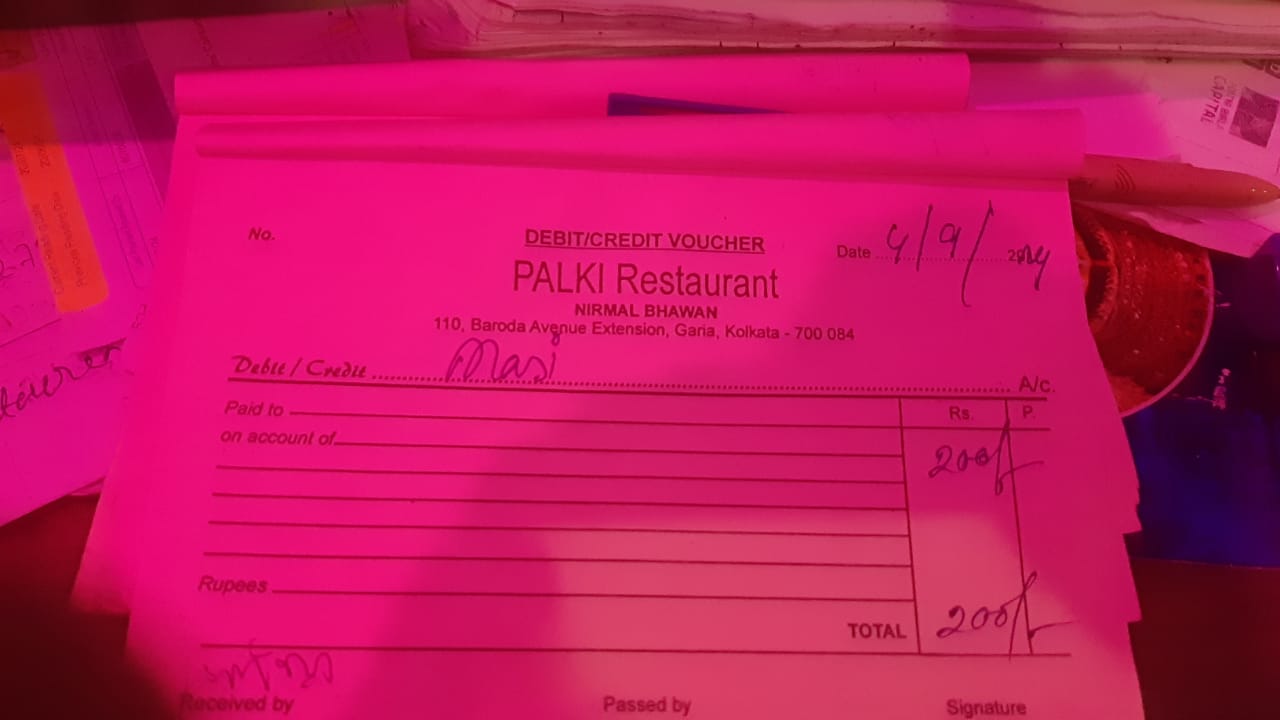 No.
DEBIT/CREDIT VOUCHER
Date 4/9/ 2024
PALKI Restaurant
NIRMAL BHAWAN
110, Baroda Avenue Extension, Garia, Kolkata - 700 084
Debit / Credit Masi A/c.
Paid to Rs. P.
on account of 200/-
Rupees
TOTAL 200/-
Received by Passed by Signature
CAPITAL